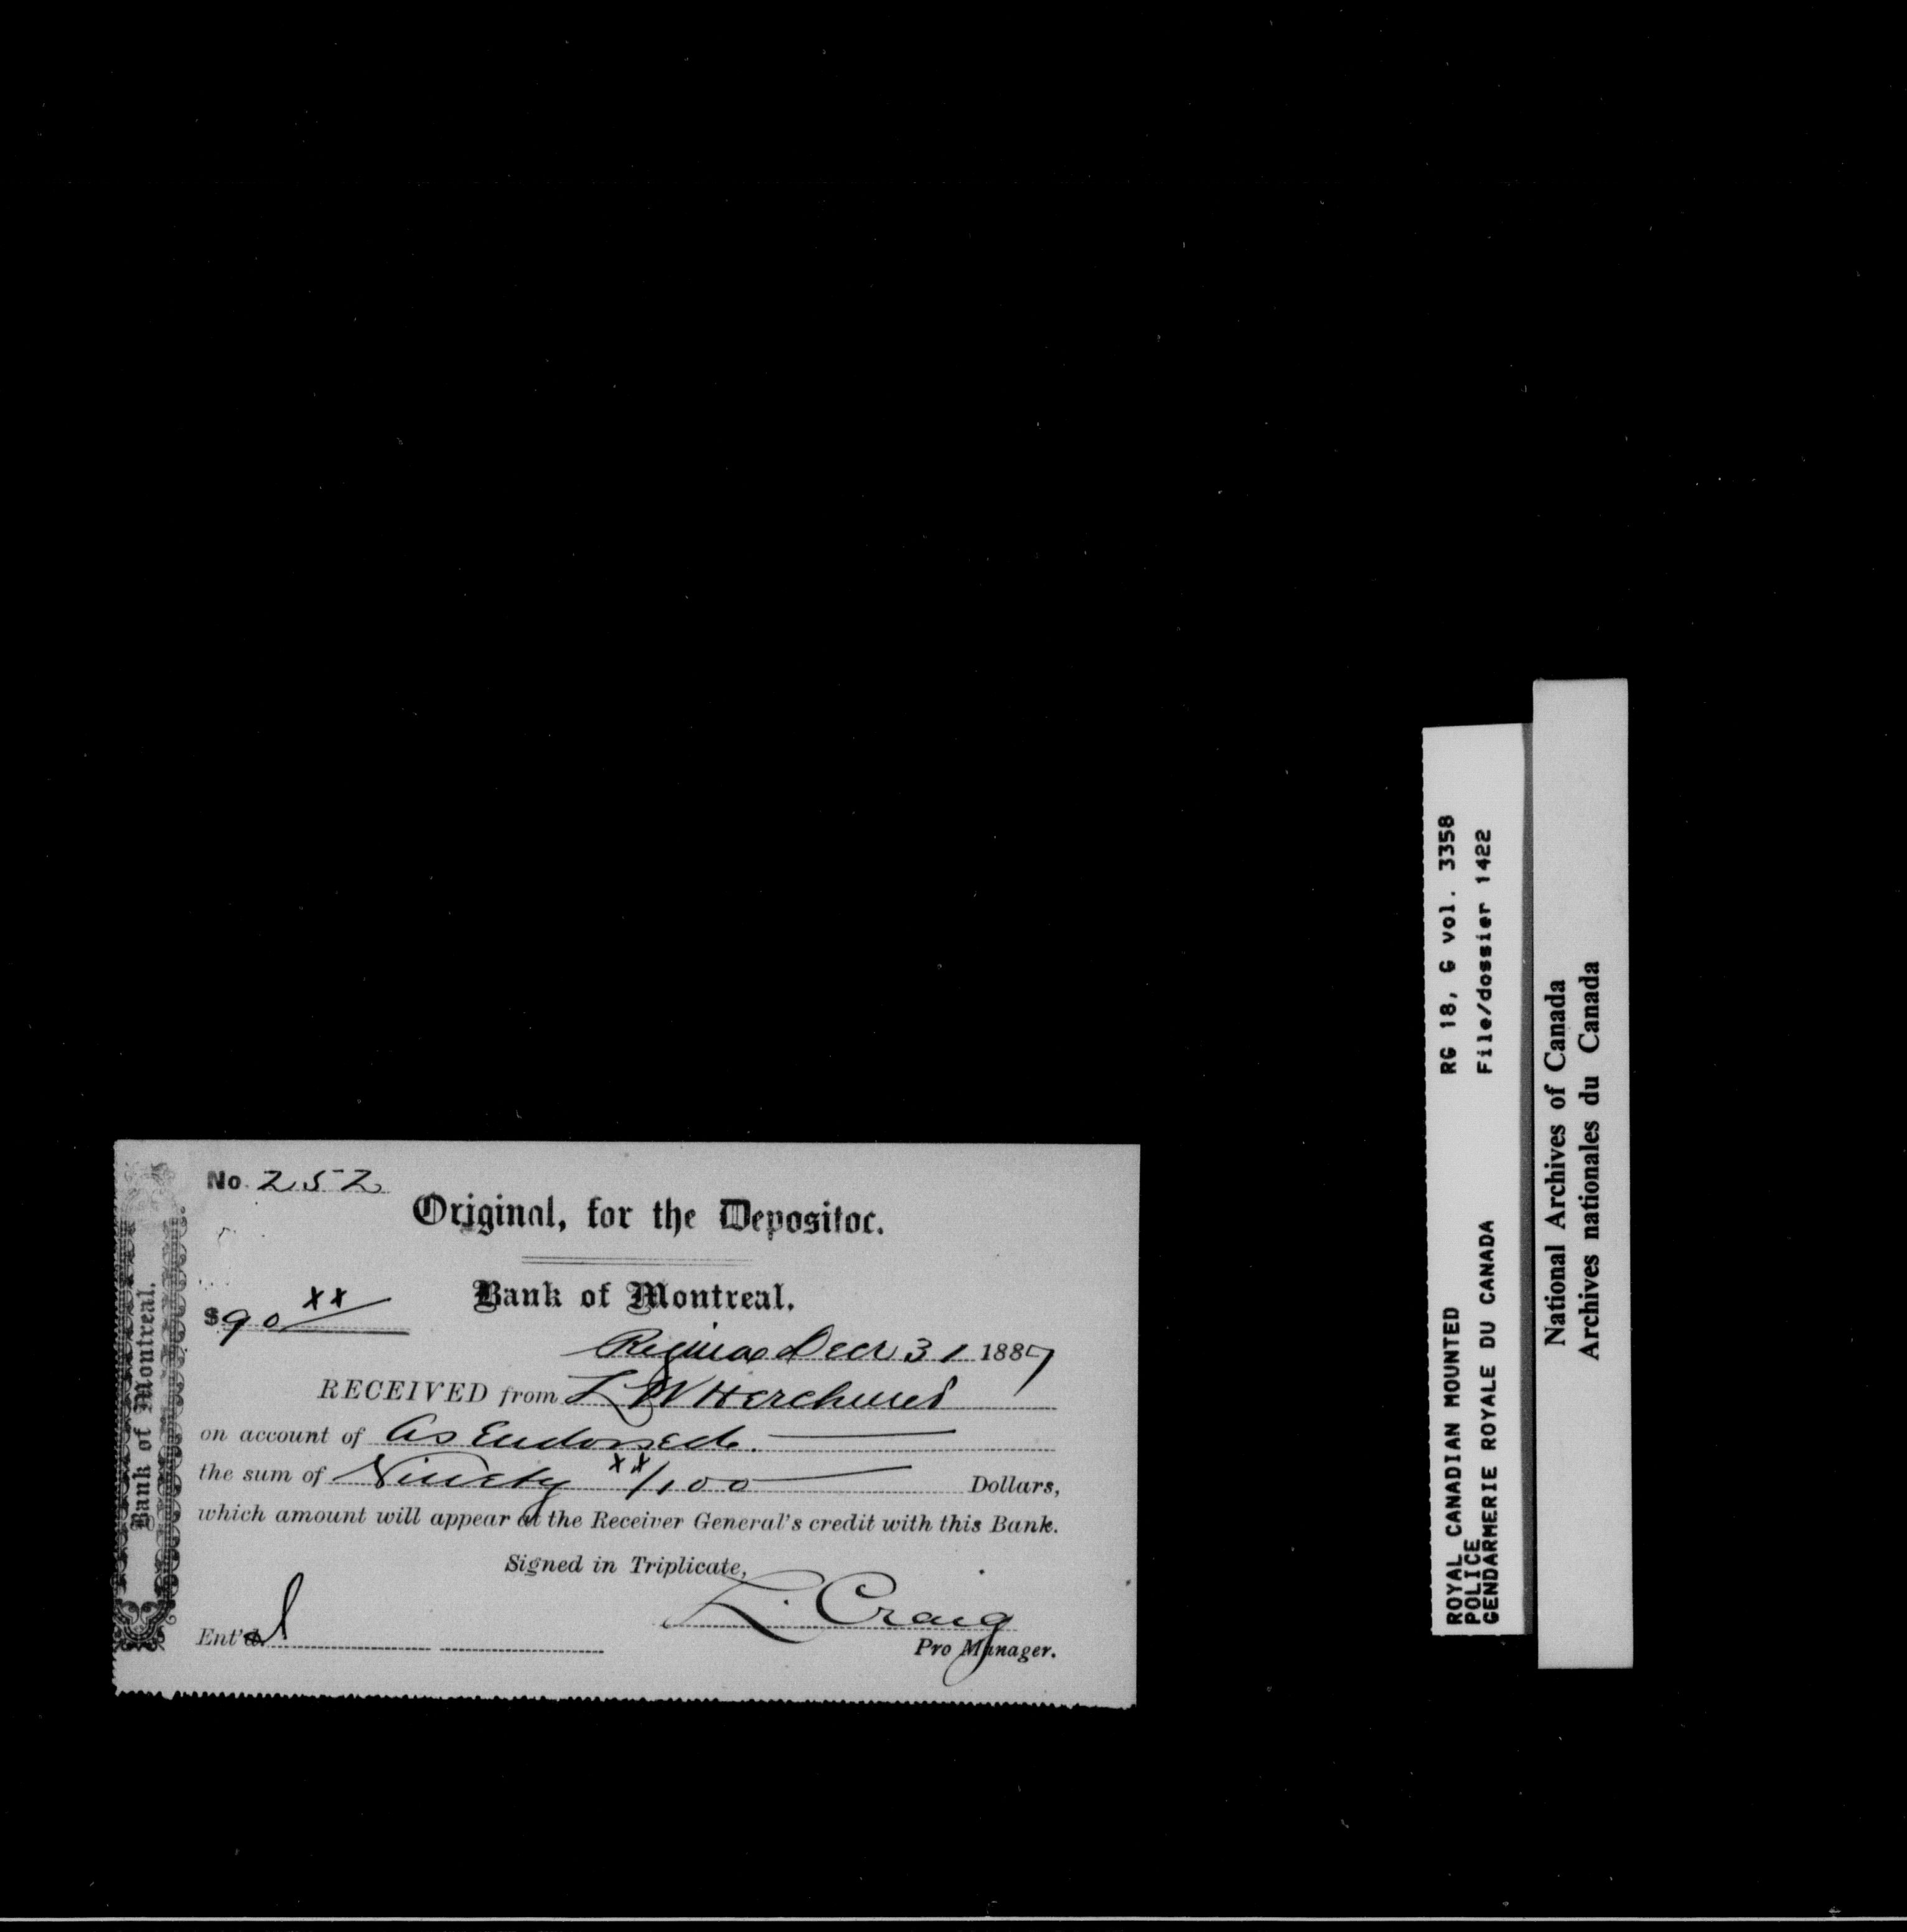 No. 252
Original, for the Depositor.
Bank of Montreal.
$90 xx/
Bank of Montreal.
Regina Decr 31 1887
RECEIVED from L W Herchmer
on account of As Endorsed.
the sum of Ninety xx/100 Dollars,
which amount will appear at the Receiver General's credit with this Bank.
Signed in Triplicate,
L. Craig
Ent'd
Pro Manager.
ROYAL CANADIAN MOUNTED RG 18, G vol. 3358
POLICE File/dossier 1422
GENDARMERIE ROYALE DU CANADA
National Archives of Canada
Archives nationales du Canada